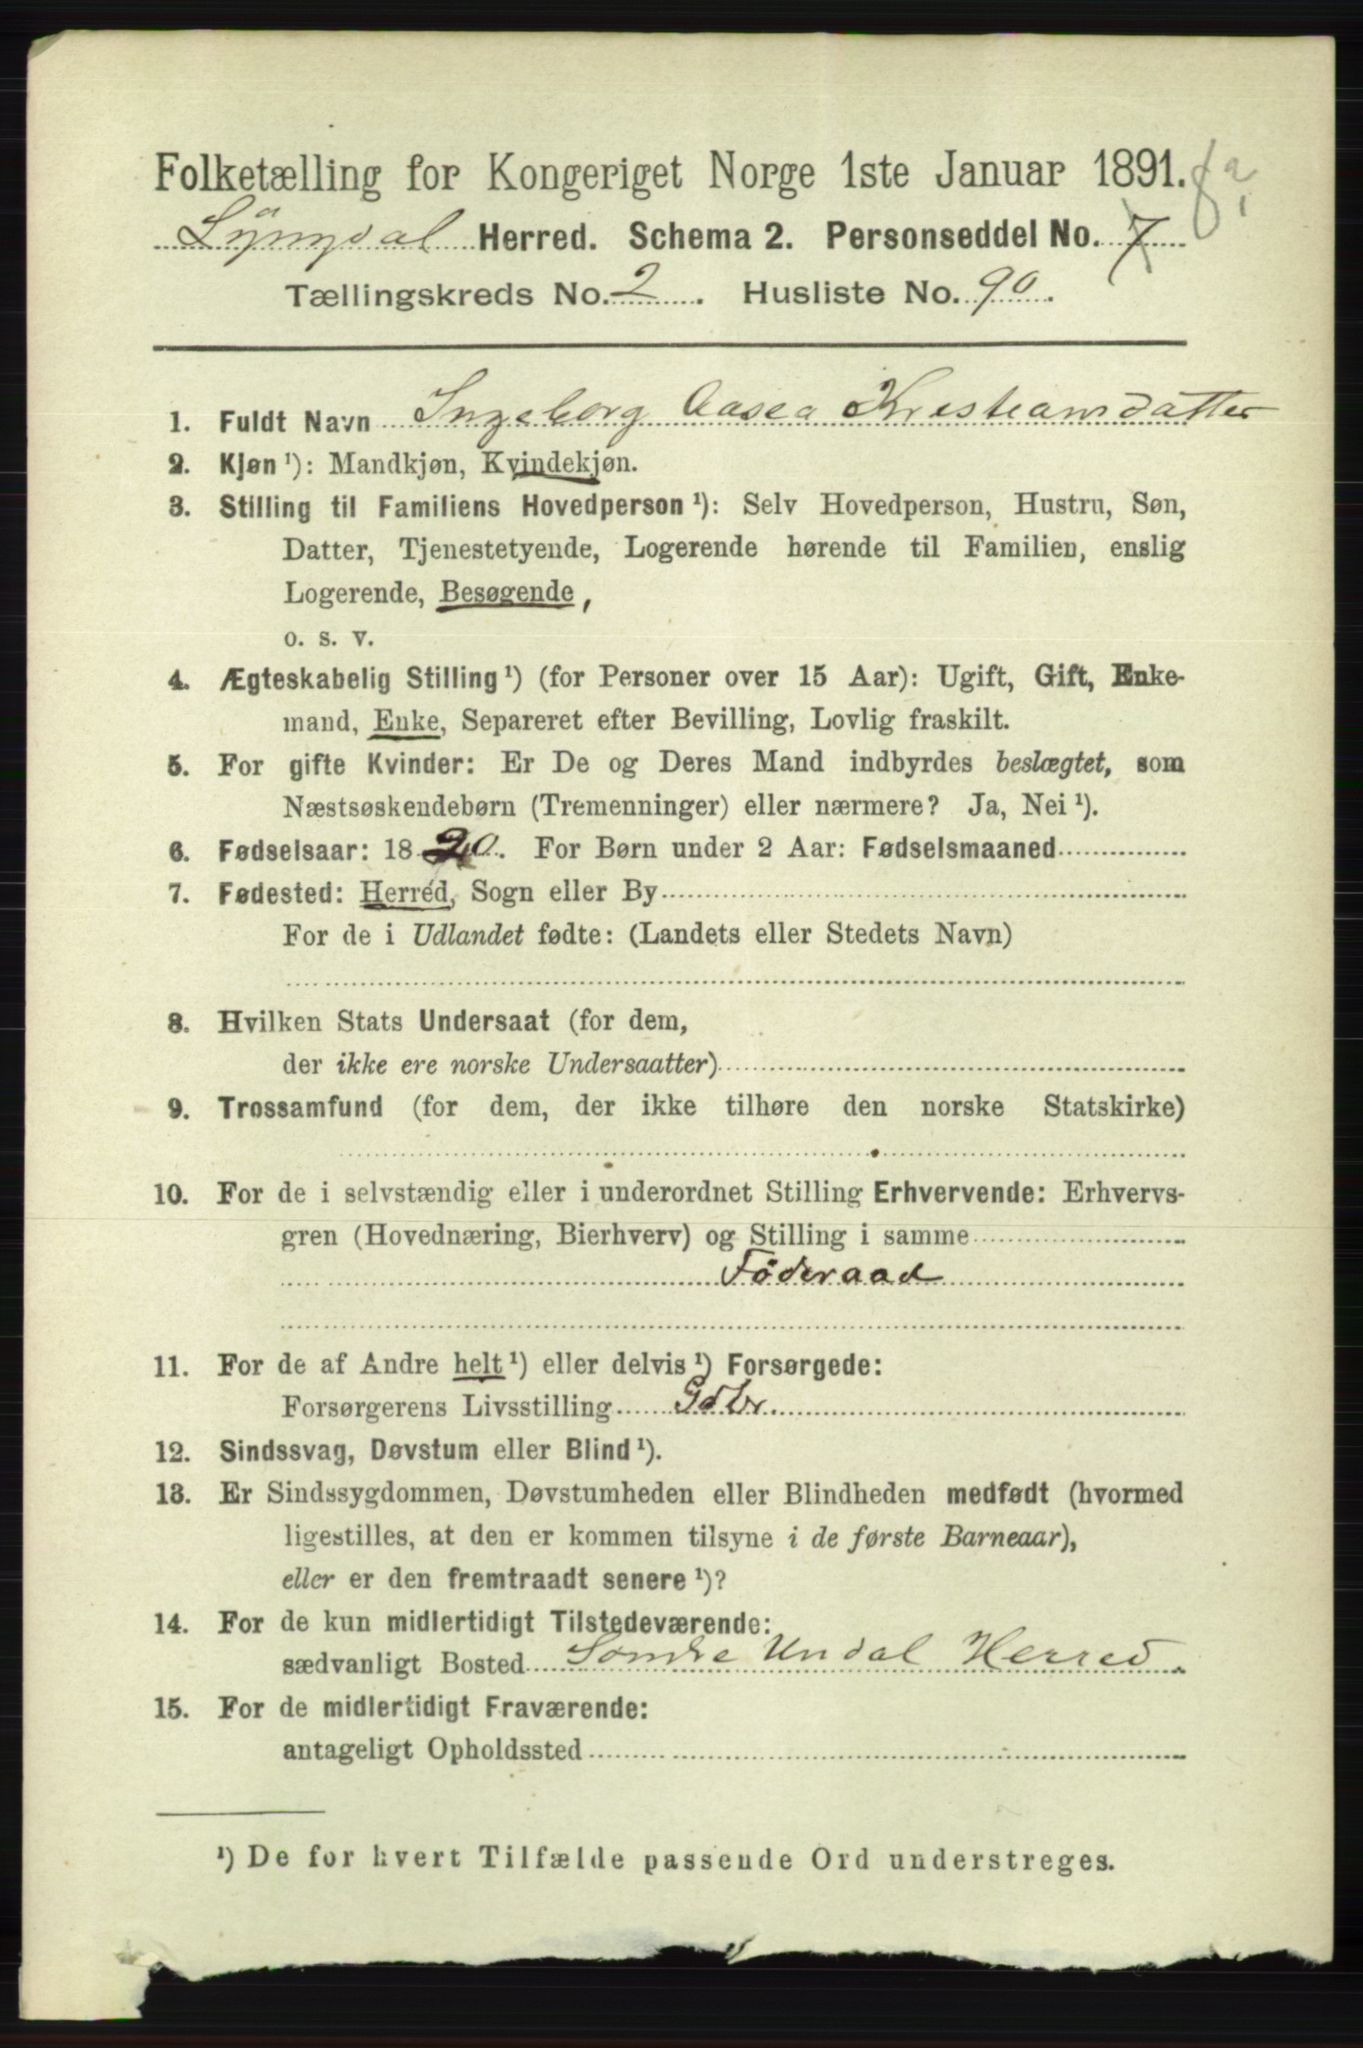 Folketælling for Kongeriget Norge 1ste Januar 1891.
Lyngdal Herred. Schema 2. Personseddel No. 7
Tællingskreds No. 2. Husliste No. 90.
1. Fuldt Navn Ingeborg Aasea Kristiansdatter
2. Kjøn ¹): Mandkjøn, Kvindekjøn.
3. Stilling til Familiens Hovedperson ¹): Selv Hovedperson, Hustru, Søn,
Datter, Tjenestetyende, Logerende hørende til Familien, enslig
Logerende, Besøgende,
o. s. v.
4. Ægteskabelig Stilling ¹) (for Personer over 15 Aar): Ugift, Gift, Enke-
mand, Enke, Separeret efter Bevilling, Lovlig fraskilt.
5. For gifte Kvinder: Er De og Deres Mand indbyrdes beslægtet, som
Næstsøskendebørn (Tremenninger) eller nærmere? Ja, Nei ¹).
6. Fødselsaar: 1820. For Børn under 2 Aar: Fødselsmaaned
7. Fødested: Herred, Sogn eller By
For de i Udlandet fødte: (Landets eller Stedets Navn)
8. Hvilken Stats Undersaat (for dem,
der ikke ere norske Undersaatter)
9. Trossamfund (for dem, der ikke tilhøre den norske Statskirke)
10. For de i selvstændig eller i underordnet Stilling Erhvervende: Erhvervs-
gren (Hovednæring, Bierhverv) og Stilling i samme
Föderaad
11. For de af Andre helt ¹) eller delvis ¹) Forsørgede:
Forsørgerens Livsstilling Gdbr.
12. Sindssvag, Døvstum eller Blind ¹).
13. Er Sindssygdommen, Døvstumheden eller Blindheden medfødt (hvormed
ligestilles, at den er kommen tilsyne i de første Barneaar),
eller er den fremtraadt senere ¹)?
14. For de kun midlertidigt Tilstedeværende:
sædvanligt Bosted Sondre Undal Herred.
15. For de midlertidigt Fraværende:
antageligt Opholdssted
¹) De for hvert Tilfælde passende Ord understreges.